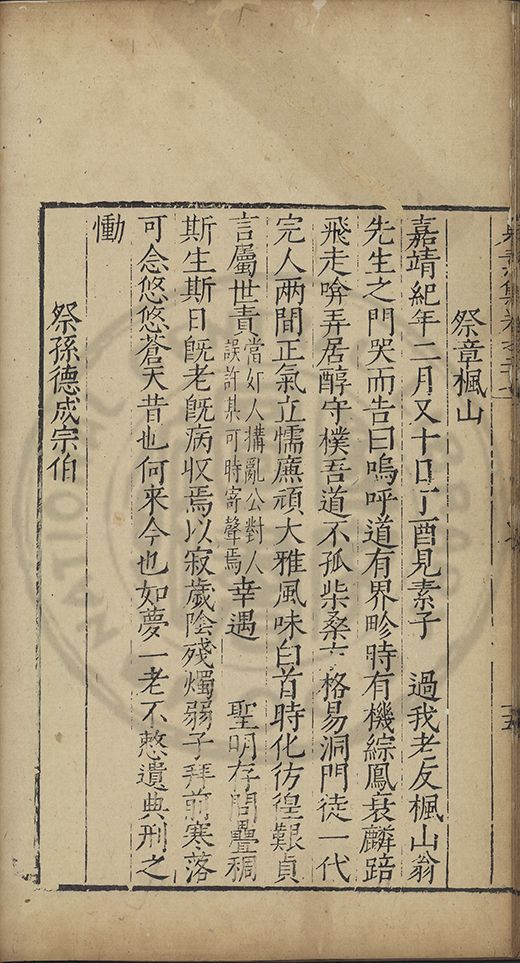 祭章楓山
嘉靖紀年二月又十日丁酉見素子　過我老友楓山翁
先生之門哭而告曰嗚呼道有界畛時有機綜鳳衰麟踣
飛走喩弄居醇守樸吾道不孤柴桑六格易洞門徒一代
完人兩間正氣立懦廉頑大雅風味白首時化彷徨艱貞
言屬世責當奸人搆亂公對人
誤許其可時寄聲焉幸遇　聖明存問疊稠
斯生斯日旣老旣病収焉以寂歲陰殘燭弱子拜前寒落
可念悠悠蒼天昔也何來今也如夢一老不憗遺典刑之
慟
祭孫德成宗伯